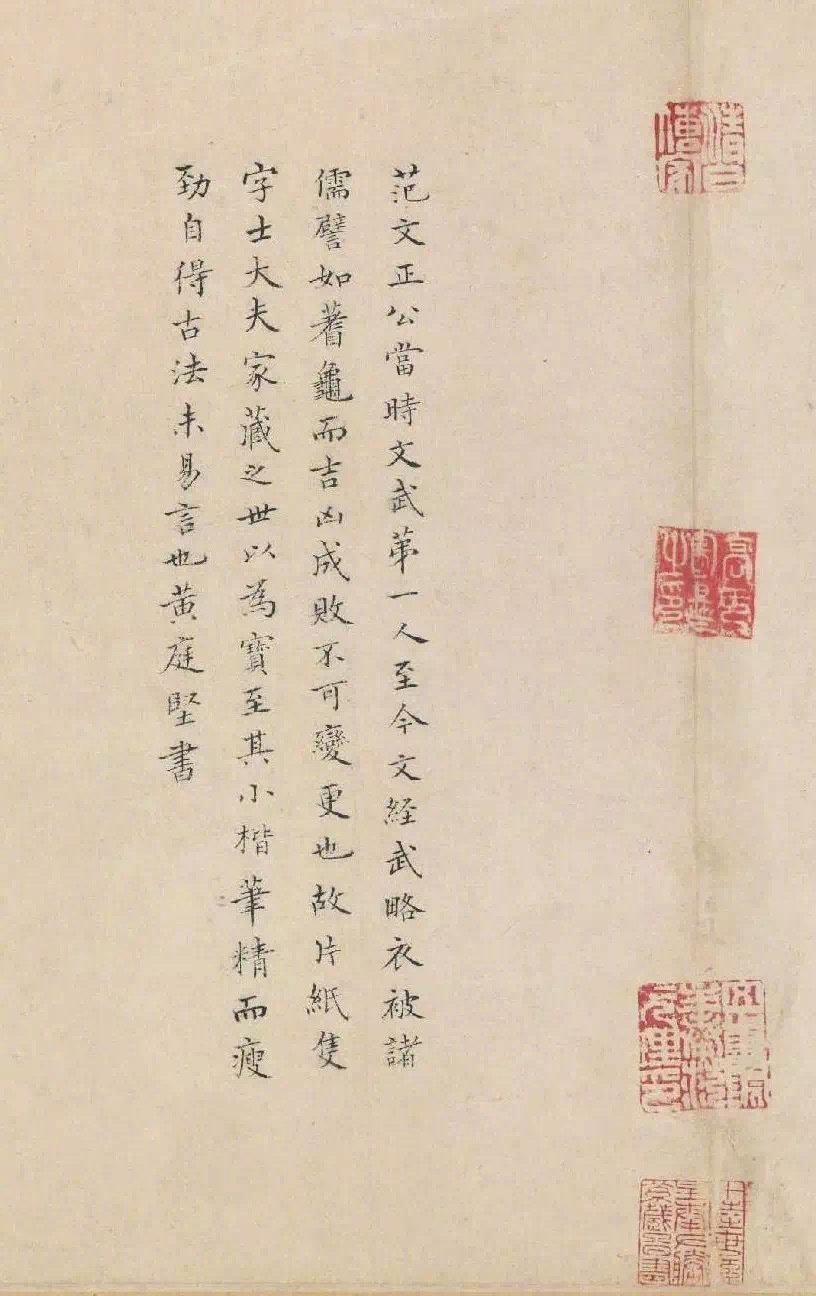 范文正公當時文武第一人至今文経武略衣被諸
儒譬如蓍龜而吉凶成敗不可變更也故片紙隻
字士大夫家藏之世以為寶至其小楷筆精而瘦
勁自得古法未易言也黃庭堅書